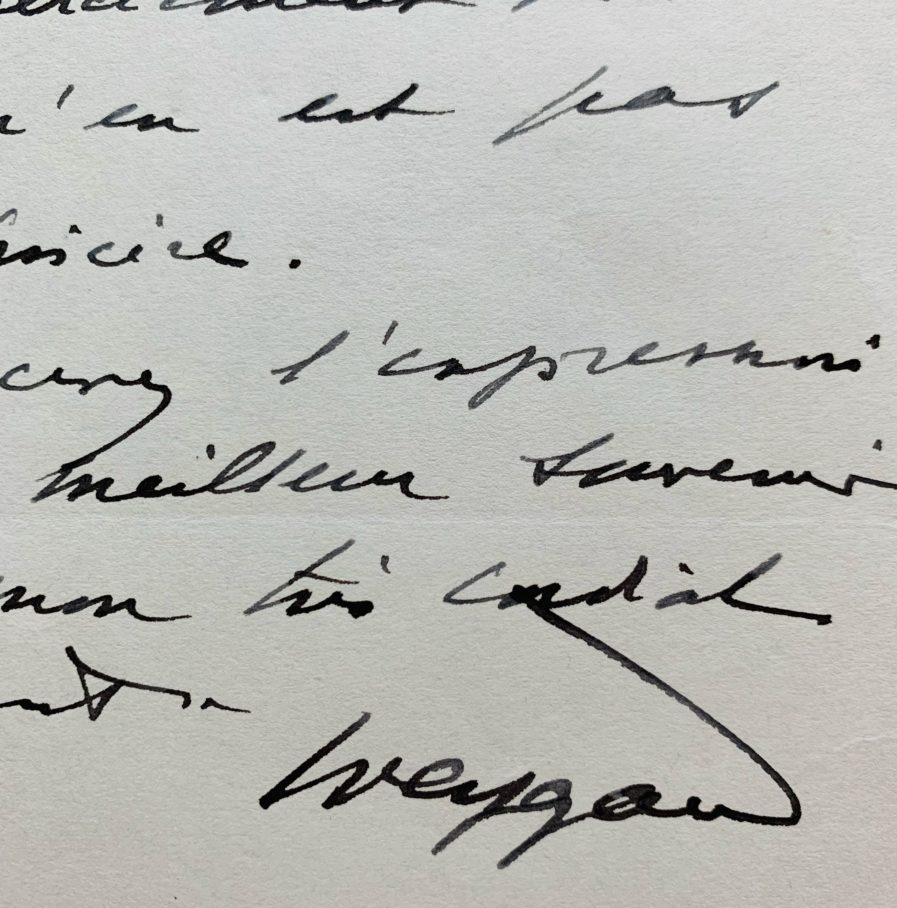 n'en est pas
sincère.
l'expression
meilleur souvenir
mon très cordial
Weygand